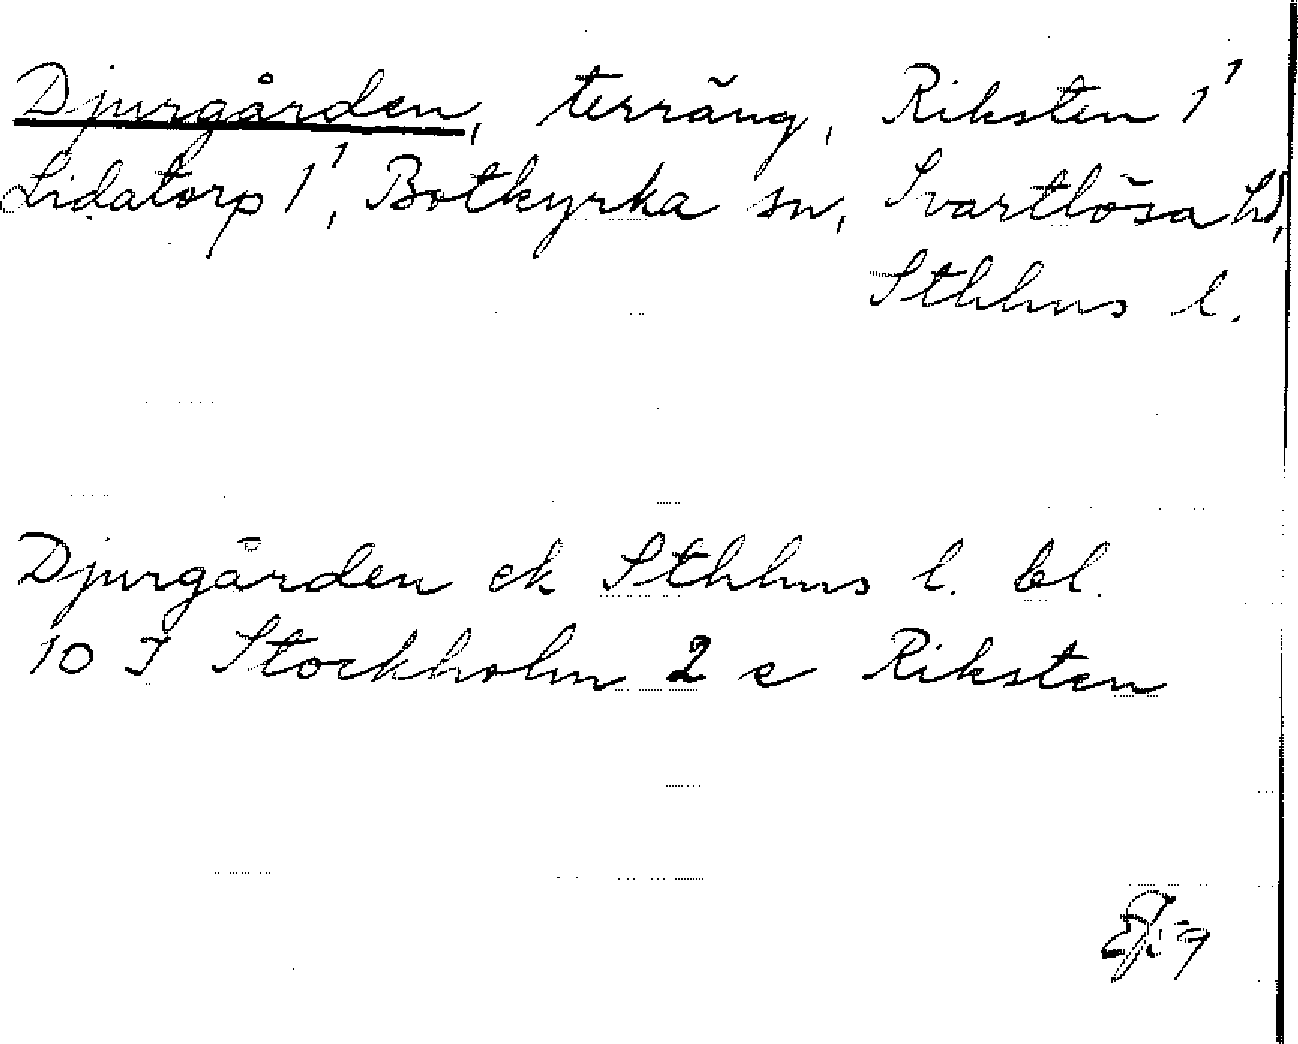 Djurgården, terräng, Riksten 1¹
Lidatorp 1¹, Botkyrka sn, Svartlösa hd,
Sthhms l.
Djurgården ek Sthhms l. bl.
10 I Stockholm 2 c Riksten